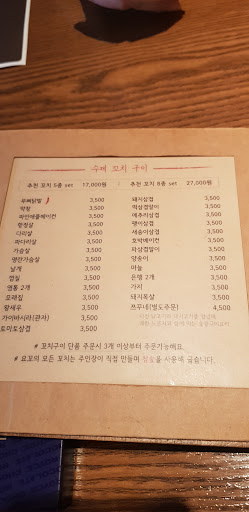 수제 꼬치 구이
추천 꼬치 5종 set 17,000원 / 추천 꼬치 8종 set 27,000원
무뼈닭발 3,500
막창 3,500
파인애플베이컨 3,500
항정살 3,500
다리살 3,500
파다리살 3,500
가슴살 3,500
명란가슴살 3,500
날개 3,500
껍질 3,500
염통 2개 3,500
모래집 3,500
왕새우 3,500
가이바시라(관자) 3,500
토마토삼겹 3,500
돼지삼겹 3,500
떡삼겹말이 3,500
메추리삼겹 3,500
팽이삼겹 3,500
새송이삼겹 3,500
호박베이컨 3,500
파삼겹말이 3,500
양송이 3,500
마늘 3,500
은행 2개 3,500
가지 3,500
돼지목살 3,500
쯔꾸네(별도주문) 4,500
# 꼬치구이 단품 주문시 3개 이상부터 주문가능해요.
# 요꼬의 모든 꼬치는 주인장이 직접 만들며 참숯을 사용해 굽습니다.